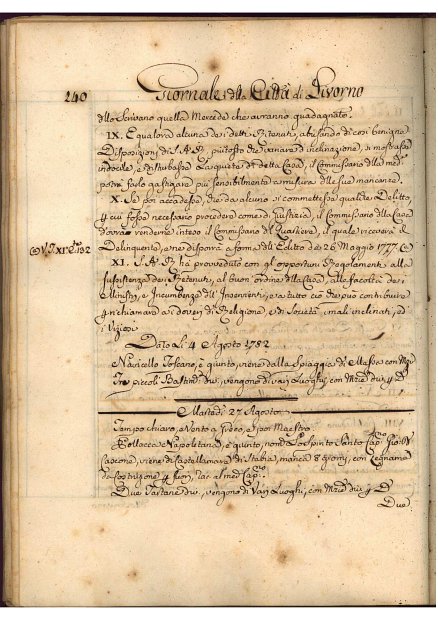 240 Giornale della Città di Livorno
dello Scrivano quella Mercede che avranno guadagnato.
IX. E qualora alcuna de' detti Ritenuti, abusando di così benigna
Disposizioni di S.A.R. piuttosto che variare d'inclinazione, si mostrasse
indocile, e disturbasse la quiete di detta Casa, il Commissario della med.
potrà farlo gastigare più sensibilmente a misura delle sue mancanze.
X. Se poi accadesse, che da alcuno si commettesse qualche Delitto,
per cui fosse necessario procedere come di Giustizia, il Commissario della Casa
dovrà renderne inteso il Commissario di Quartiere, il quale riceverà il
Delinquente, e ne disporrà a forma dell'Editto de' 26 Maggio 1777.
V. T. XI. 132
XI. S.A.R. ha provveduto con gli opportuni Regolamenti alla
sussistenza de' Ritenuti, al buon ordine della Casa, alle facoltà de'
Ministri, e Incumbenze degl'Inservienti, e a tutto ciò che può contribuire
per richiamare a' doveri di Religione, e di Società i male inclinati, ed
i Viziosi.
Dato Li 4 Agosto 1782
Navicello Toscano, è giunto, viene dalla Spiaggia di Massa con
Tre piccoli Bastim. div. vengono di vari Luoghi, con Merc. div. per D.
Martedì 27 Agosto
Tempo chiaro, e Vento a Greco, e poi Maestro
Pollacca Napoletana, è giunto, nom. Lo Spirito Santo Cap.no Gio:
Cascone, viene di Castellamare di Stabia, manca 8 giorni, con Legname
da Costruzione per sum. rac. al med. Cap.no
Due Tartane div. vengono di Vari Luoghi, con Merc. div. per D.
Due